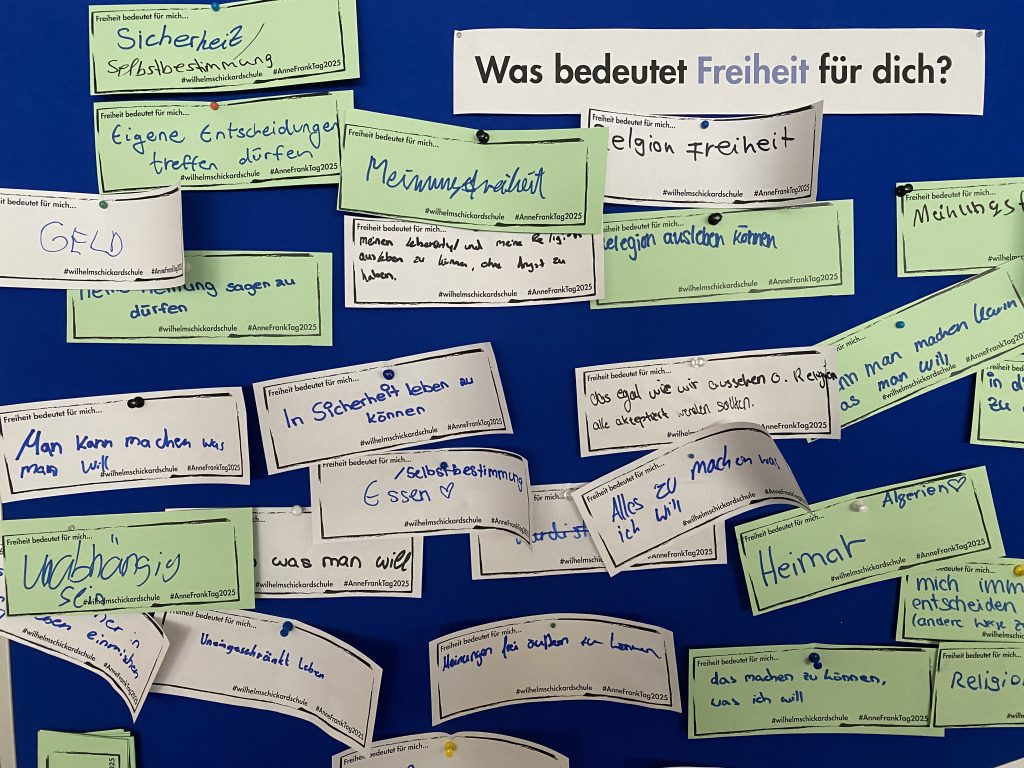 Was bedeutet Freiheit für dich?
Freiheit bedeutet für mich...
Sicherheit/
Selbstbestimmung
#wilhelmschickardschule #AnneFrankTag2025
Freiheit bedeutet für mich...
Eigene Entscheidungen
treffen dürfen
#wilhelmschickardschule #AnneFrankTag2025
Freiheit bedeutet für mich...
Meinungsfreiheit
#wilhelmschickardschule #AnneFrankTag2025
bedeutet für mich...
Religion Freiheit
#wilhelmschickardschule #AnneFrankTag2025
bedeutet für mich...
GELD
#wilhelmschickardschule #AnneFrankTag2025
Meinung sagen zu
dürfen
#wilhelmschickardschule #AnneFrankTag2025
Freiheit bedeutet für mich...
meinen Lebensstyl und meine Religion
ausleben zu können, ohne Angst zu
haben.
#wilhelmschickardschule #AnneFrankTag2025
Freiheit bedeutet für mich...
Relegion ausleben können
#wilhelmschickardschule #AnneFrankTag2025
Freiheit bedeutet für mich...
#wilhelmschickardschule
für mich...
man machen kann
man will
#wilhelmschickardschule #AnneFrankTag2025
Freiheit bedeutet
in d
zu
Freiheit bedeutet für mich...
Man kann machen was
man will
#wilhelmschickardschule #AnneFrankTag2025
Freiheit bedeutet für mich...
In Sicherheit leben zu
können
#wilhelmschickardschule #AnneFrankTag2025
Freiheit bedeutet für mich...
das egal wie wir aussehen o. Religion
alle akzeptiert werden sollten.
#wilhelmschickardschule #AnneFrankTag2025
Freiheit bedeutet für mich...
/Selbstbestimmung
Essen ♡
#wilhelmschickardschule #AnneFrankTag2025
Freiheit bedeutet für mich...
Alles zu machen was
ich will
#wilhelmschickardschule
Freiheit bedeutet für mich...
Algerien ♡
Heimat
#wilhelmschickardschule #AnneFrankTag2025
Freiheit bedeutet für mich...
Unabhängig
sein
#wilhelmschickardschule #AnneFrankTag2025
was man will
#wilhelmschickardschule #AnneFrankTag2025
Freiheit bed
#AnneFrankTag2025
bedeutet für mich...
mich imm
entscheiden
#wilhelmschickardschule
in
einmischen
#wilhelmschickardschule #AnneFrankTag2025
Freiheit bedeutet für mich...
Uneingeschränkt leben
#wilhelmschickardschule #AnneFrankTag2025
Freiheit bedeutet für mich...
Meinungen frei äußern zu können
#wilhelmschickardschule #AnneFrankTag2025
Freiheit bedeutet für mich...
das machen zu können,
was ich will
#wilhelmschickardschule #AnneFrankTag2025
Freiheit bedeutet für mich...
Religio
#wilhelmschickardschule
Freiheit bedeutet für mich...